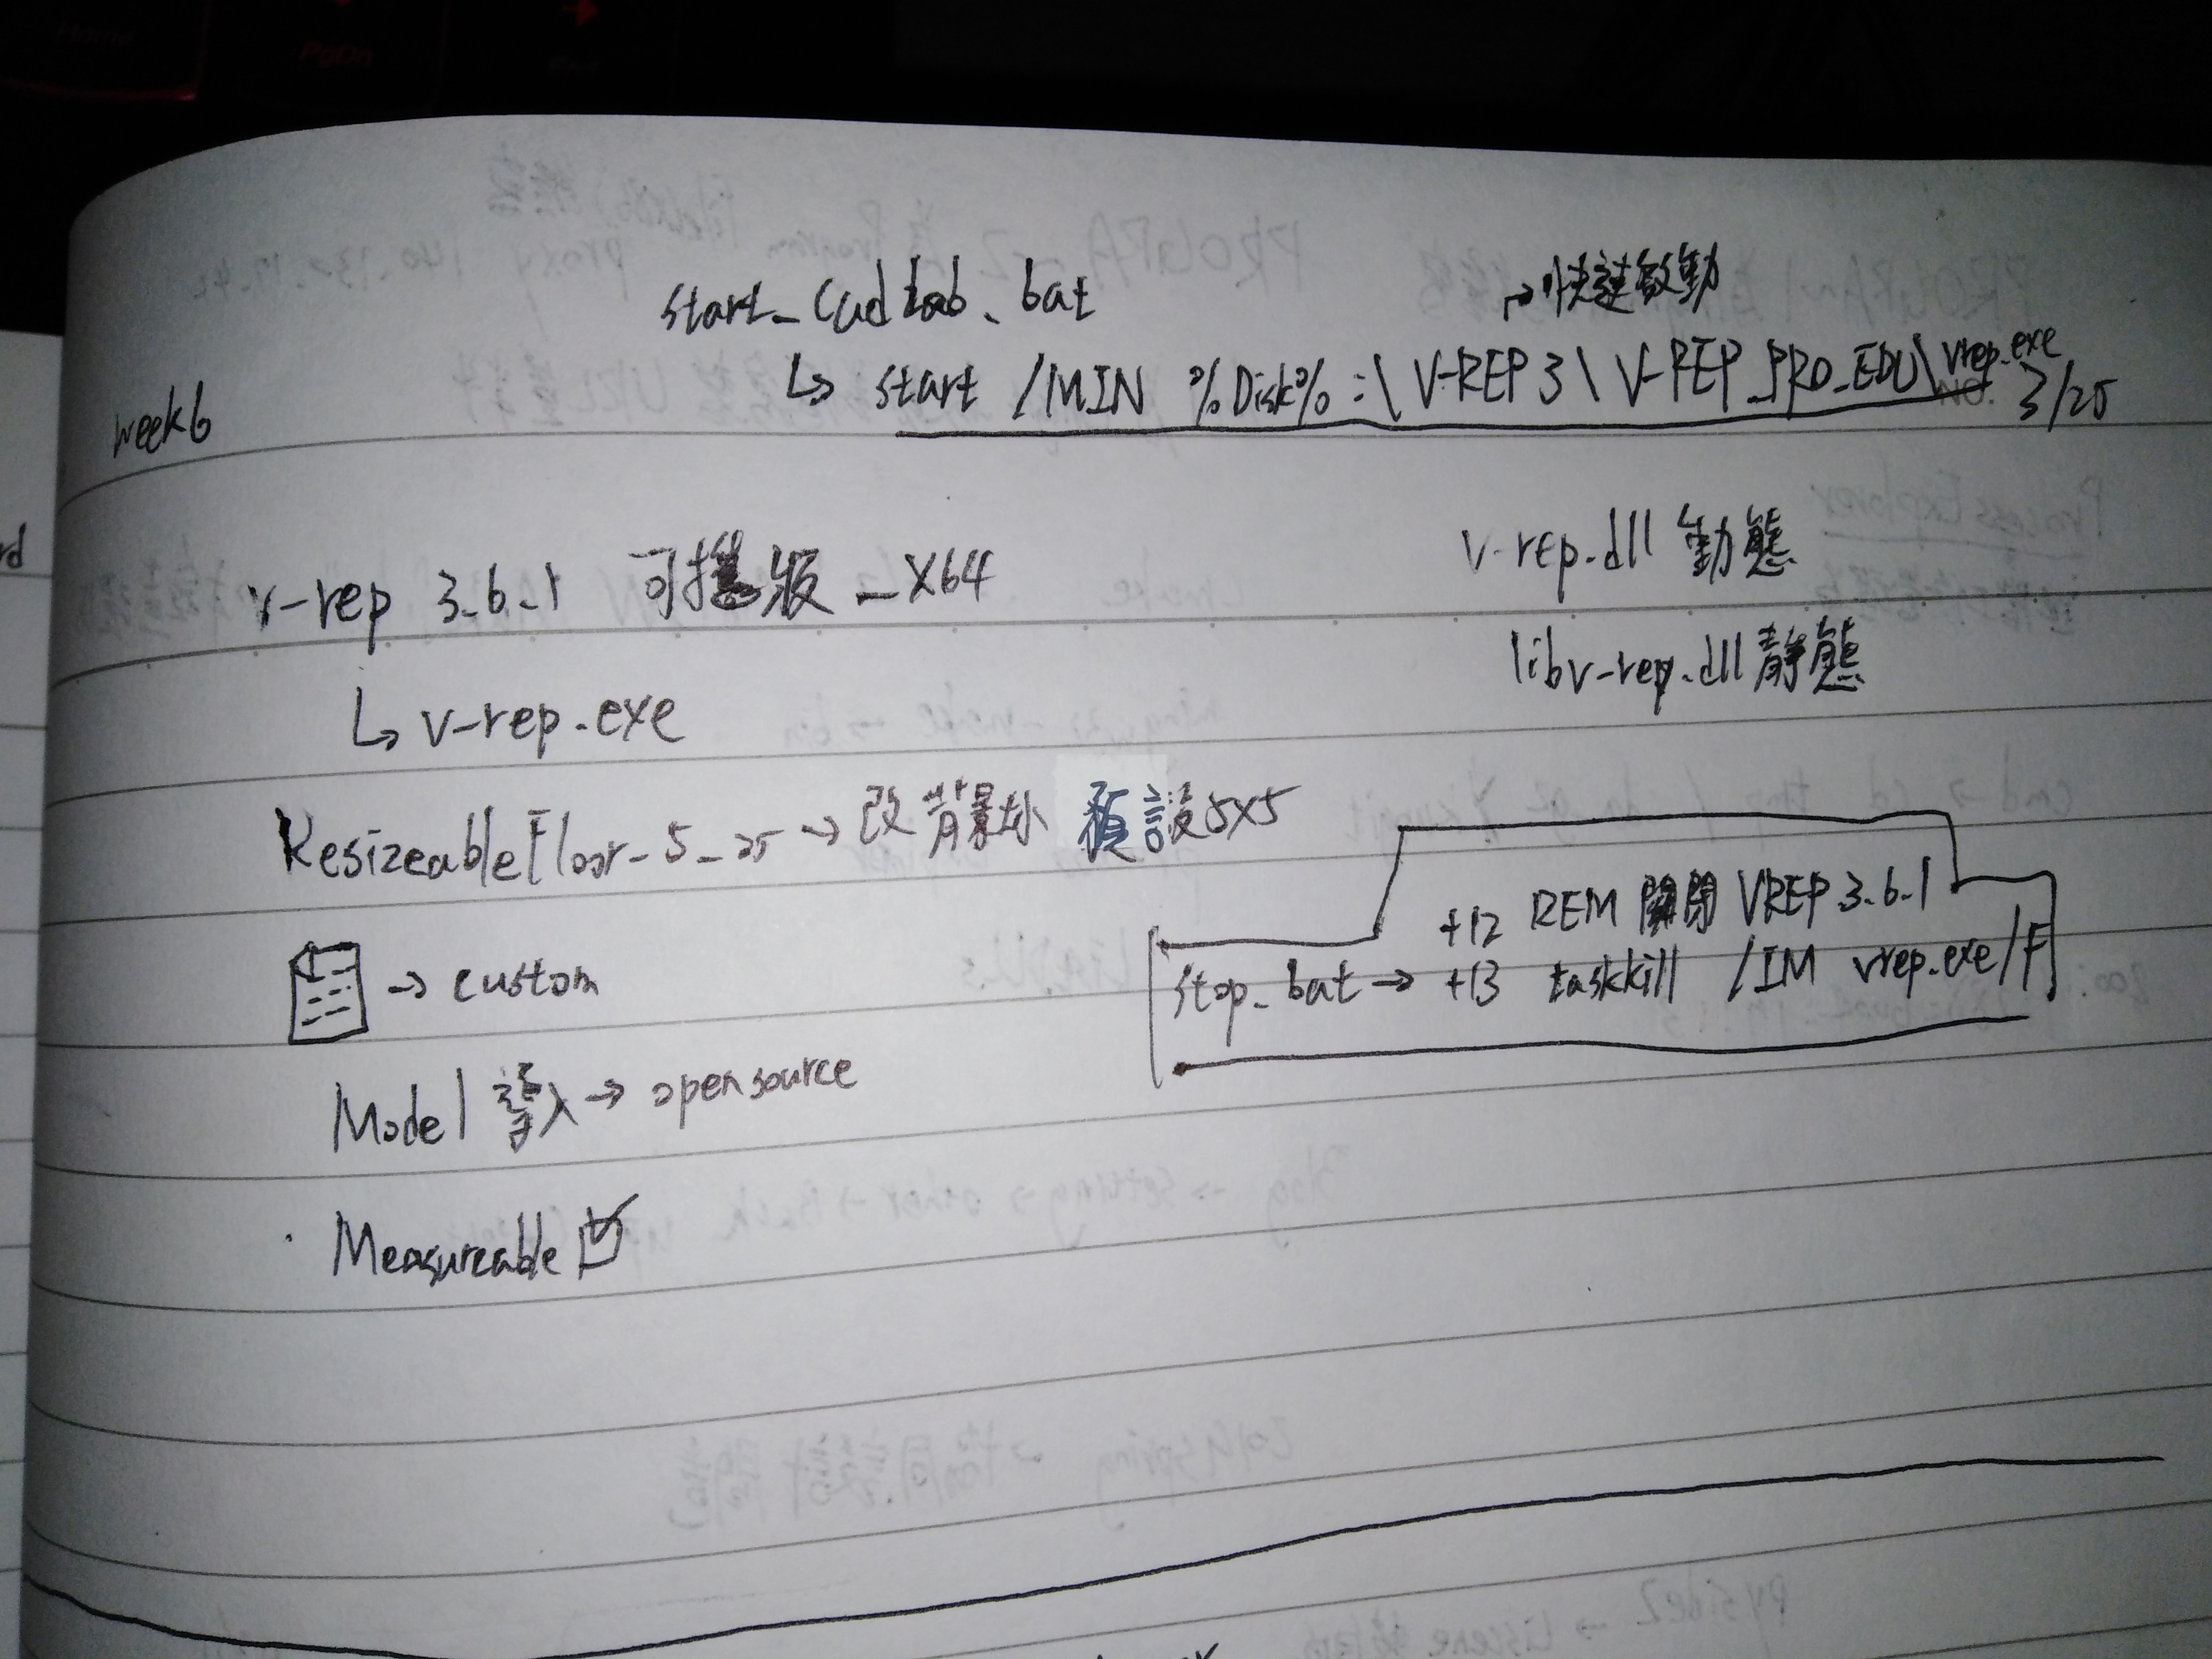 start_cadlab.bat
→快速啟動
↳ start /MIN %Disk%:\V-REP3\V-REP_PRO_EDU\vrep.exe
week6
3/25
v-rep 3.6.1 可攜版_X64
v-rep.dll 動態
libv-rep.dll 靜態
↳ v-rep.exe
ResizeableFloor_5_25→改背景 預設5x5
+12 REM 關閉 VREP 3.6.1
→ custom
stop_bat → +13 taskkill /IM vrep.exe/F
Model 導入→ opensource
Measureable